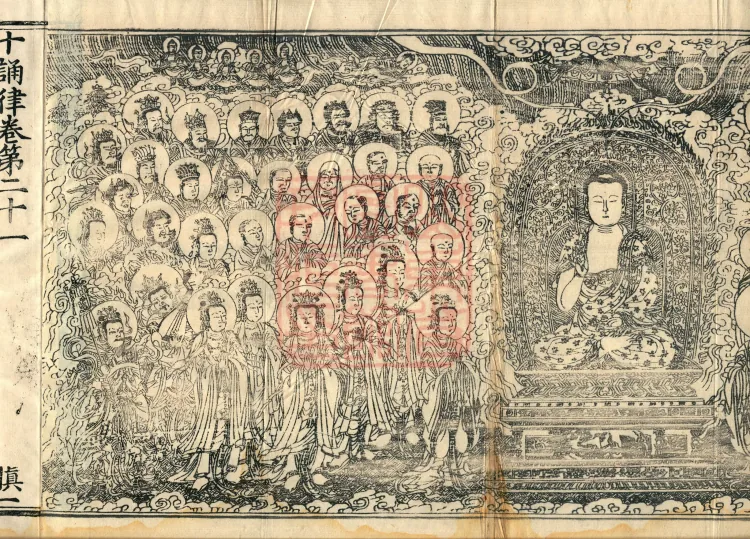 十誦律卷第二十一
慎一